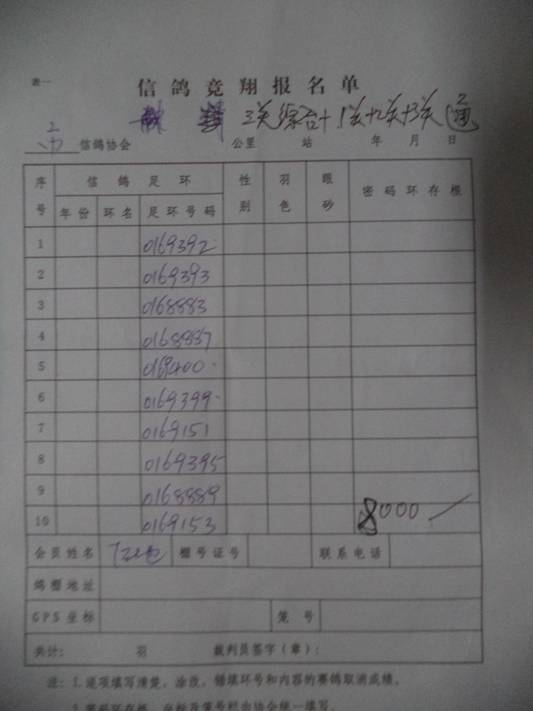 表一
信鸽竞翔报名单
三关综合+1关+2关+3关
信鸽协会 公里 站 年 月 日
序号 信鸽足环 性别 羽色 眼砂 密码环存根
年份 环名 足环号码
1 0169392
2 0169393
3 0168883
4 0168887
5 0169400
6 0169399
7 0169151
8 0169395
9 0168889
10 0169153 8000
会员姓名 棚号证号 联系电话
鸽棚地址
GPS坐标 笼号
共计: 羽 裁判员签字(章):
注:1.逐项填写清楚,涂改、错填环号和内容的赛鸽取消成绩。